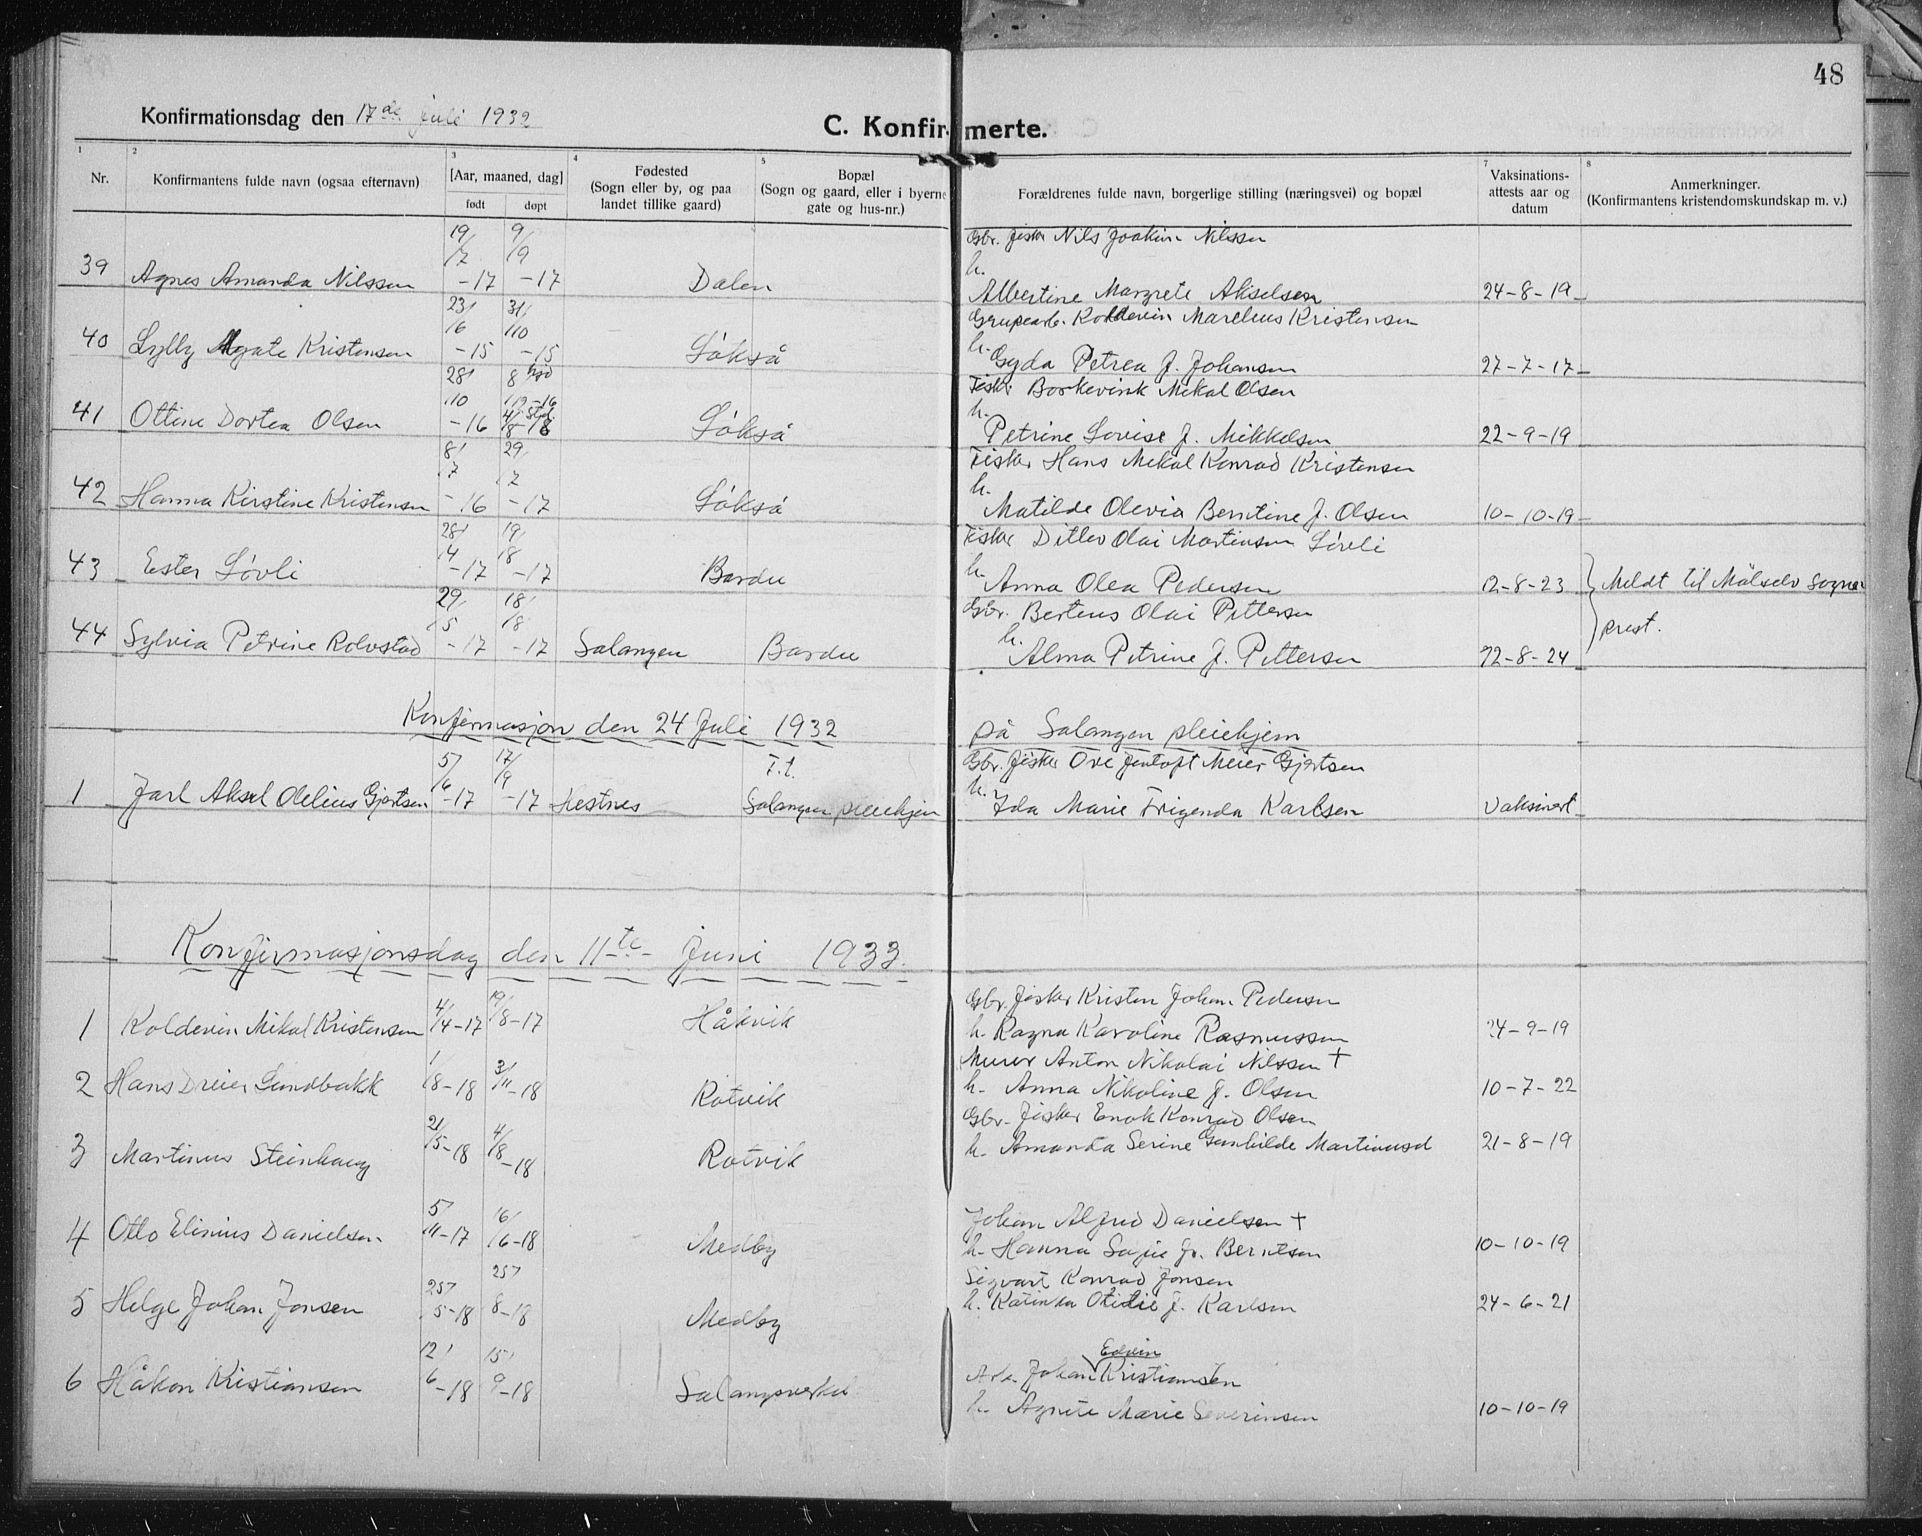 48
Konfirmationsdag den 17de Juli 1932
C. Konfirmerte.
1 2 3 4 5 7 8
Nr.
Konfirmantens fulde navn (ogsaa efternavn)
[Aar, maaned, dag]
født døpt
Fødested
(Sogn eller by, og paa
landet tillike gaard)
Bopæl
(Sogn og gaard, eller i byerne
gate og hus-nr.)
Forældrenes fulde navn, borgerlige stilling (næringsvei) og bopæl
Vaksinations-
attests aar og
datum
Anmerkninger.
(Konfirmantens kristendomskundskap m. v.)
19/7 9/9 Gbr. fisker Nils Joakim Nilssen
39 Agnes Amanda Nilssen -17 -17 Dalen h. Albertine Margrete Akselsen 24-8-19
23/6 31/10 Kristensen
40 Agate Kristensen -15 -15 Løkså h. Gyda Petrea f. Johansen 27-7-17
28/10 Fisker Borkevink Mekal Olsen
41 Ottine Dortea Olsen -16 Løkså h. Petrine Lovise f. Mikkelsen 22-9-19
8/7 29/7 Fisker Hans Mekal Konrad Kristensen
42 Hanna Kirstine Kristensen -16 -17 Løkså h. Matilde Olevia Berntine f. Olsen 10-10-19
28/4 19/8 Fisker Ditlev Olai Martinsen Løvli
43 Ester Løvli -17 -17 Bardu h. Anna Olea Pedersen 12-8-23 Meldt til Målselv sogne-
29/5 18/8 Gbr. Berteus Olai Pettersen
44 Sylvia Petrine Rolvstad -17 -17 Salangen Bardu h. Alma Petrine f. Pettersen 12-8-24 prest.
Konfirmasjon den 24 Juli 1932 på Salangen pleiehjem
5/6 17/9 F.t. Gbr. fisker Ove Jentoft Meier Gjertsen
1 Jarl Aksel Odelius Gjertsen -17 -17 Hestnes Salangen pleiehjem h. Ida Marie Frigenda Karlsen Vaksinert
Konfirmasjonsdag den 11te Juni 1933.
Gbr. fisker Kristen Johan Pedersen
1 Koldevin Mikal Kristensen 4/4-17 19/8-17 Håkvik h. Ragna Karoline Rasmussen 24-9-19
Murer Anton Nikolai Nilssen +
2 Hans Dreier Sundbakk 1/8-18 3/11-18 Rotvik h. Anna Nikoline f. Olsen 10-7-22
Gbr. fisker Enok Konrad Olsen
3 Martinus Steinhaug 21/5-18 4/8-18 Rotvik h. Amanda Serine Gunhilde Martinusd 21-8-19
Johan Alfred Danielsen +
4 Otto Elinius Danielsen 5/11-17 16/6-18 Medby h. Hanna Sofie f. Berntsen 10-10-19
Sigvart Konrad Jonsen
5 Helge Johan Jonsen 25/5-18 25/8-18 Medby h. Katinka Otidie f. Karlsen 24-6-21
Edvin
Arb. Johan Kristiansen
6 Håkon Kristiansen 12/6-18 15/9-18 Salangsverket h. Agnete Marie Severinsen 10-10-19